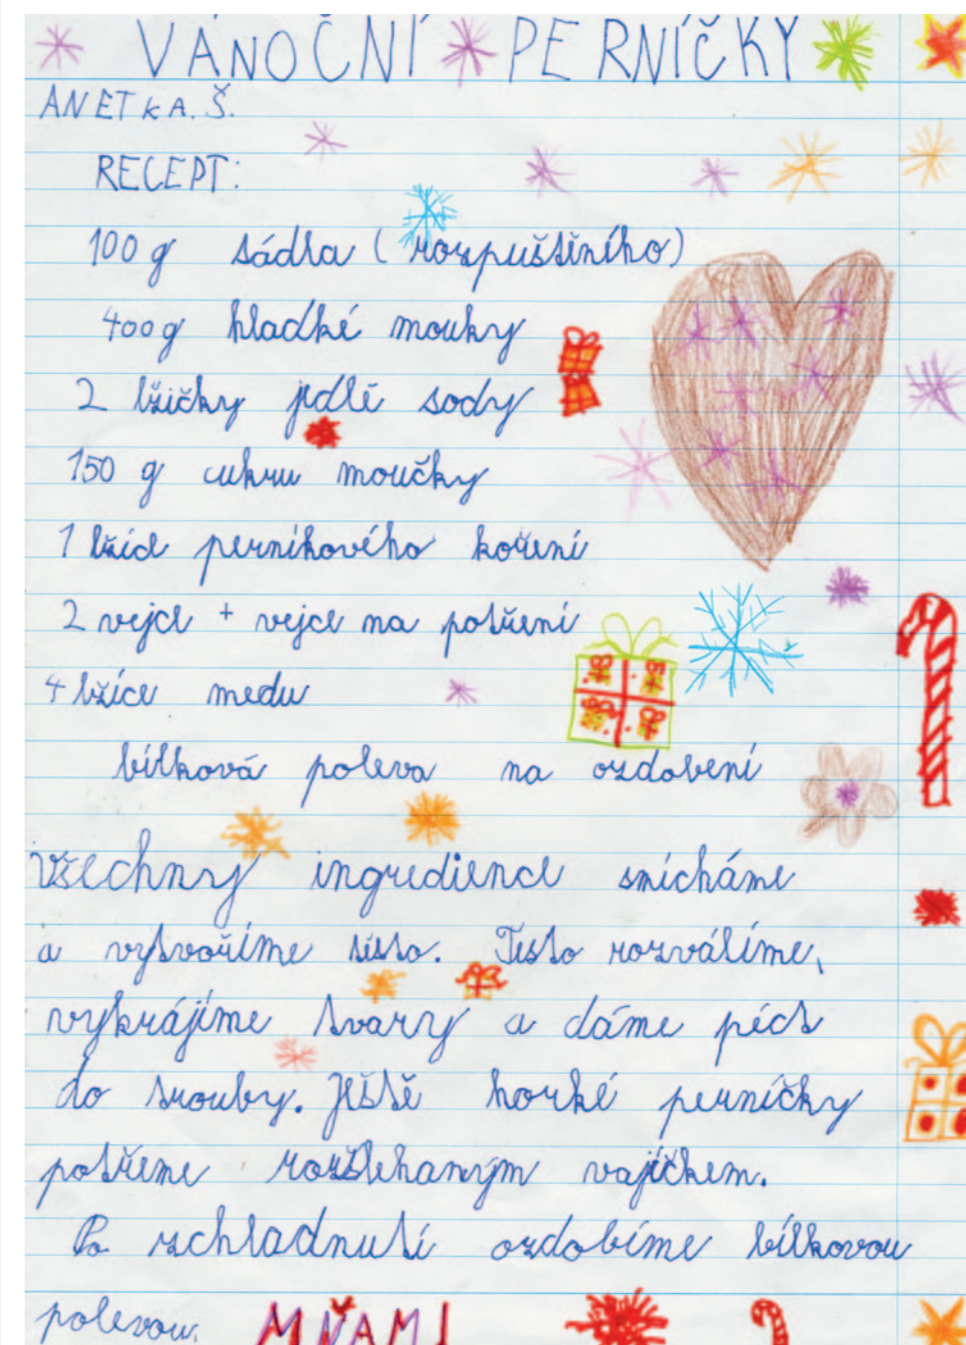 VÁNOČNÍ PERNÍČKY
ANETKA. Š.
RECEPT:
100 g sádla (rozpuštěního)
400 g hladké mouky
2 lžičky jedlé sody
150 g cukru moučky
1 lžíce perníkového koření
2 vejce + vejce na potření
4 lžíce medu
bílková poleva na ozdobení
Všechny ingredience smícháme
a vytvoříme těsto. Těsto rozválíme,
vykrájíme tvary a dáme péct
do trouby. Ještě horké perníčky
potřeme rozšlehaným vajíčkem.
Po zchladnutí ozdobíme bílkovou
polevou. MŇAM!